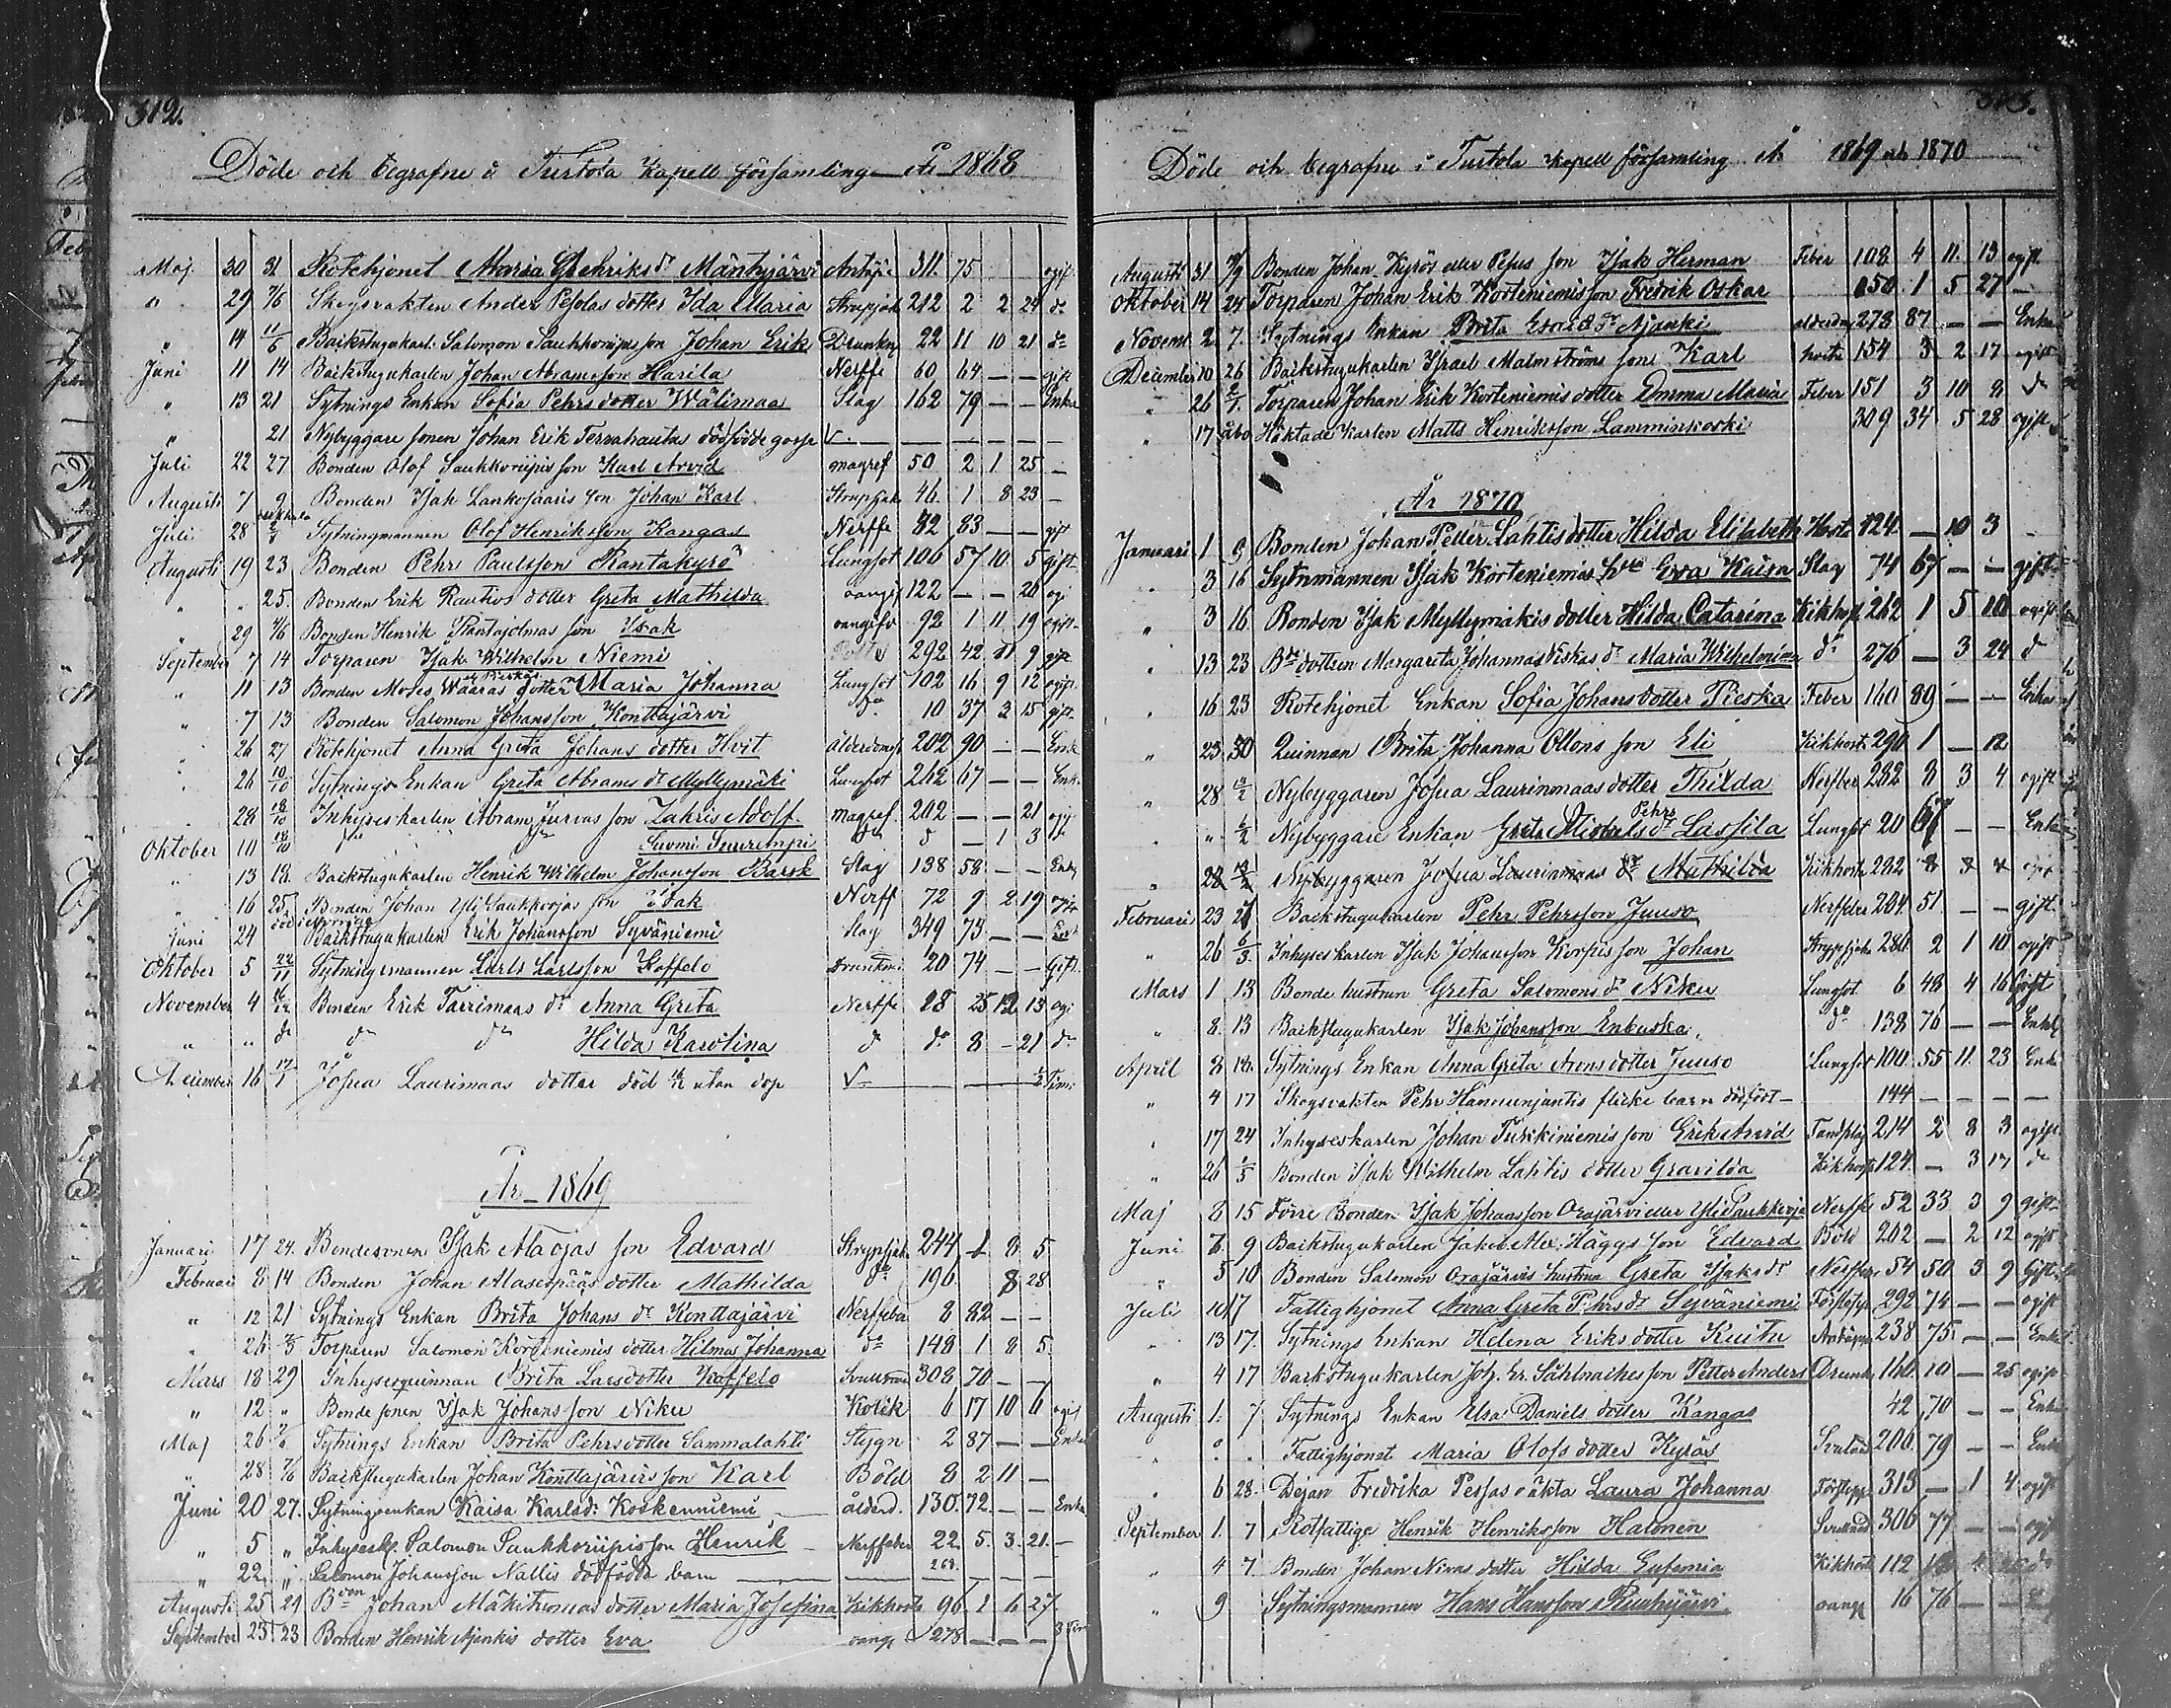 312.
Döde och begrafne i Turtola Kapell församling År 1868
Maj 30 31 Rotehjonet Maria Henriks dr Mäntyjärvi 311 75 ogift
" 29 7/6 Skogsvakten Anders Pessas dotter Ida Maria Strupsjuk 212 2 2 24 do
" 14 11/6 Backstugukarl. Salomon Saukkoriipis son Johan Erik Drunkn 22 11 10 21 do
Juni 11 14 Backstugukarlen Johan Abramsson Harila Nerffe 60 64 — — gift
" 13 21 Sytnings Enkan Sofia Pehrs dotter Wälimaa Slag 162 79 — — Enka
" 21 Nybyggare sonen Johan Erik Tervahautas dödfödde gosse
Juli 22 27 Bonden Olof Saukkoriipis son Karl Arvid magref 50 2 1 25 —
Augusti 7 9 Bonden Isak Lankojääris son Johan Karl Strupsjuk 46 1 8 23 —
Juli 28 2/8 Sytningmannen Olof Henriksson Kangas Nerffe 82 83 — — gift
Augusti 19 23 Bonden Pehr Paulsson Rantakyrö Lungsot 106 57 10 5 gift
" " 25. Bonden Erik Rautios dotter Greta Mathilda oangif 122 — — 26 ogi
" 29 Bonden Henrik son Isak oangifv 92 1 11 19 ogift
September 7 14 Torparen Isak Wilhelm Niemi 292 42 11 9 gift
" 11 13 Bonden Moses Waaras dotter Maria Johanna Lungsot 102 16 9 12 ogift
" 7 13 Bonden Salomon Johansson Konttajärvi do 10 37 2 15 gift
" 26 27 Rotehjonet Anna Greta Johans dotter Hvit Ålderdoms 202 90 — — Enk
" 26 10/10 Sytnings Enkan Greta Abrams dr Myllymäki Lungsot 262 67 — — Enk.
" 28 18/10 Inhyseskarlen Abram Jurvas son Zakris Adolf magref. 202 — — 21 ogi
Oktober 10 18/10 Suomi Suurempi 5 — 1 3
" 13 18. Backstugukarlen Henrik Wilhelm Johansson Barsk Slag 138 58 — — Enk
" 16 25 Bonden Johan Yli Saukkojas son Isak Nerff 72 9 2 19 ogi
död i Norrige
Juni 24 Backstugukarlen Erik Johansson Syväniemi Slag 349 73 — —
Oktober 5 22/11 Sytningsmannen Karls Larsson Koffelo Drunkn 20 74 — — Gift
November 4 Bonden Erik Tarrimaas dr Anna Greta Nerffe 28 25 12 13 ogi
" " dr dr dr Hilda Karolina dr do 8 — 21 do
December 16 17/1 Josua Laurimaas dotter död utan dop
År 1869
Januari 17 24. Bondesonen Isak Alaojas son Edvard Strypsjuk 244 1 8 5
Februari 8 14 Bonden Johan Alaserpääs dotter Mathilda do 196 8 28
" 12 21 Sytnings Enkan Brita Johans dr Konttajärvi Nerffeber 8 82 — —
" 26 Torparen Salomon Korteniemis dotter Hilma Johanna do 148 1 8 5
Mars 18 29 Inhysesquinnan Brita Larsdotter Koffelo 308 70 — —
" 12 " Bonde sonen Isak Johansson Niku Kolik 6 17 10 6 ogif
Maj 26 7/6 Sytnings Enkan Brita Pehrsdotter Sammalahti Stygn 2 87 — — Enka
" 28 7/6 Backstugukarlen Johan Konttajärvis son Karl Böld 8 2 11 —
Juni 20 27. Sytningsenkan Kaisa Karlsdr Koskenniemi ålderd. 130. 72. — — Enka
" 5 " Inhyseskl. Salomon Saukkoriipis son Henrik Nerffeber 22. 5. 3. 21. —
" 22. " Salomon Johansson Nallis dödfödda barn 269.
Augusti 25 29 Johan Mäkituomas dotter Maria Josefina Kikhosta 96 1 6 27
September 23 23 Bonden Henrik Ajankis dotter Eva oang. 278 — — —
313.
Döde och begrafne i Turtola kapell församling år 1869 och 1870
Augusti 31 7/9 Bonden Johan Kyrös eller Pesus son Isak Herman Feber 108 4 11 13 ogift
Oktober 14 24 Torparen Johan Erik Korteniemis son Fredrik Oskar 150 1 5 27 —
Novemb 2 7. Sytnings Enkan Brita Esaiæ dr Ajanki 278 87 — — Enka
December 10 26 Backstugukarlen Israel Malmströms son Karl hosta 154 3 2 17 ogift
" 26 2/1 Torparen Johan Erik Korteniemis dotter Emma Maria Feber 151 3 10 8 do
" 17 Åbo Häktade karlen Matts Henriksson Lamminkoski 309 34 5 28 ogift
År 1870
Januari 1 9 Bonden Johan Petter Lahtis dotter Hilda Elisabeth Hosta 124 — 10 3 —
" 3 16 Sytnmannen Isak Korteniemis hu Eva Kaisa Slag 74 67 — — gift
" 3 16 Bonden Isak Myllymäkis dotter Hilda Catarina Kikhost 262 1 5 10 ogift
" 13 23 Bde dottren Margareta Johannas Niskas dr Maria Wilhelmina do 276 — 3 24 do
" 16 23 Rotehjonet Enkan Sofia Johansdotter Pieska Feber 160 89 — — Enka
" 23 30 Quinnan Brita Johanna Ollons son Eli Kikhosta 290 1 — 12
" 28 Nybyggaren Josua Laurinmaas dotter Thilda Nerfber 282 8 3 4 ogift
" " Nybyggare Enkan Greta Michels Pehrs dr Lassila Lungsot 20 67 — — Enka
" 28 Nybyggaren Josua Laurinmaas dr Mathilda Kikhosta 282 8 3 4 ogi
Februari 23 27 Backstugukarlen Pehr Pehrsson Juuso Nerffeber 204 51 — — gift
" 26 6/3 Inhyseskarlen Isak Johansson Korpis son Johan Strypsjuka 286 2 1 10 ogift
Mars 1 13 Bonde hustrun Greta Salomons dr Niku Lungsot 6 48 4 16 Gift
" 8. 13 Backstugukarlen Isak Johansson Enbuska do 138 76 — — Enkl
April 8 18. Sytnings Enkan Anna Greta Arons dotter Juuso Lungsot 100. 55 11. 23 Enka
" 4 17 Skogsvakten Pehr Hannunjantis flicke barn dödfödt — 144 — — — —
" 17 24 Inhyseskarlen Johan Turkkiniemis son Erik Arvid Tandslag 214 2 8 3 ogift
" 26 1/5 Bonden Isak Wilhelm Lahtis dotter Gravilda Kikhosta 124. — 3 17 do
Maj 8 15 Förre Bonden Isak Johansson Orajärvi eller Yli Saukkooja Nerffe 52 33 3 9 gift
Juni 6 9 Backstugukarlen Jakob Alex. Häggs son Edvard Böld 202 — 2 12 ogift
" 5 10 Bonden Salomon Orajärvis hustrun Greta Isaks dr Nerffeb. 54 50 3 9 Gift
Juli 10 17 Fattighjonet Anna Greta Pehrs dr Syväniemi 292 74 — — ogift
" 13 17. Sytnings Enkan Helena Eriks dotter Kuitu 238 75 — — Enka
" 4 17 Backstugukarlen Joh. Er. Såhlnackes son Petter Anders Drunk 160 10 — 25 ogift
Augusti 1. 7 Sytnings Enkan Elsa Daniels dotter Kangas 42 70 — — Enka
" " . Fattighjonet Maria Olofs dotter Kyrös 206. 79 — — Enka
" 6 28. Dejan Fredrika Pessas oäkta Laura Johanna 313 — 1 4 ogift
September 1. 7 Rotfattige Henrik Henriksson Halonen 306 77 — — ogift
" 4 7. Bonden Johan Nivas dotter Hilda Eufemia Kikhost 112
" 9 Sytningsmannen Hans Hansson Ruuhijärvi oang 16 76 — —